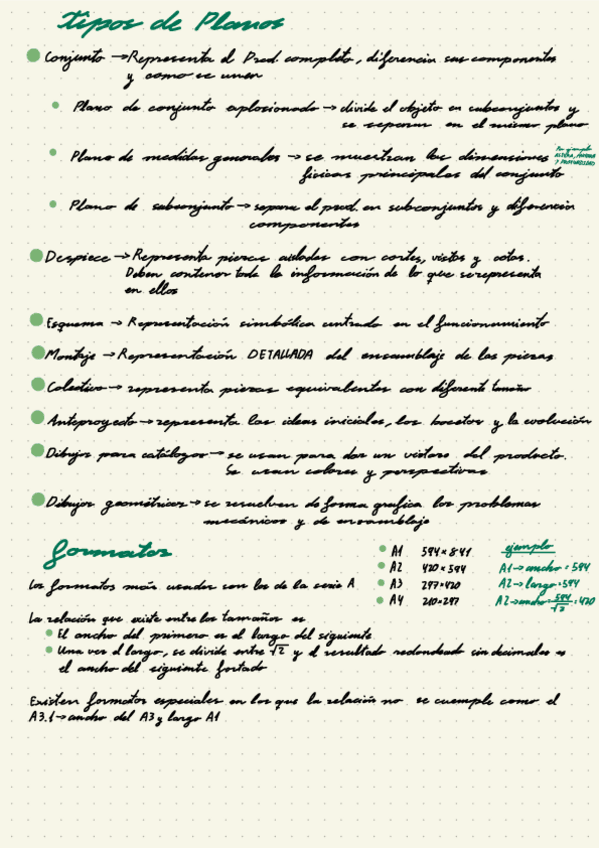 Tipos de Planos
Conjunto → Representa el Prod. completo, diferencia sus componentes
y como se unen
Plano de conjunto explosionado → divide el objeto en subconjuntos y
se separan en el mismo plano
Plano de medidas generales → se muestran las dimensiones
Por ejemplo
ALTURA, ANCHURA
Y PROFUNDIDAD
físicas principales del conjunto
Plano de subconjunto → separa el prod. en subconjuntos y diferencia
componentes
Despiece → Representa piezas aisladas con cortes, vistas y cotas.
Deben contener toda la información de lo que se representa
en ellos
Esquema → Representación simbólica centrado en el funcionamiento
Montaje → Representación DETALLADA del ensamblaje de las piezas
Colectivo → representa piezas equivalentes con diferente tamaño
Anteproyecto → representa las ideas iniciales, los bocetos y la evolución
Dibujos para catálogos → se usan para dar un vistazo del producto.
Se usan colores y perspectivas
Dibujos geométricos → se resuelven de forma grafica los problemas
mecánicos y de ensamblaje
Formatos
Los formatos más usados son los de la serie A
A1 594 × 841
A2 420 × 594
A3 297 × 420
A4 210 × 297
ejemplo
A1 → ancho = 594
A2 → largo = 594
A2 → ancho = 594/√2 = 420
La relación que existe entre los tamaños es
El ancho del primero es el largo del siguiente
Una vez el largo, se divide entre √2 y el resultado redondeado sin decimales es
el ancho del siguiente
Existen formatos especiales en los que la relación no se cuemple como el
A3.1 → ancho del A3 y largo A1